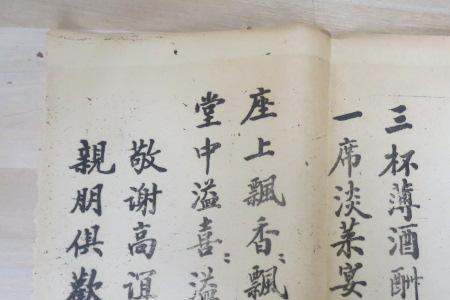 三杯薄酒酬
一席淡菜宴
座上飄香〻飄
堂中溢喜〻溢
敬谢高誼
親朋俱歡